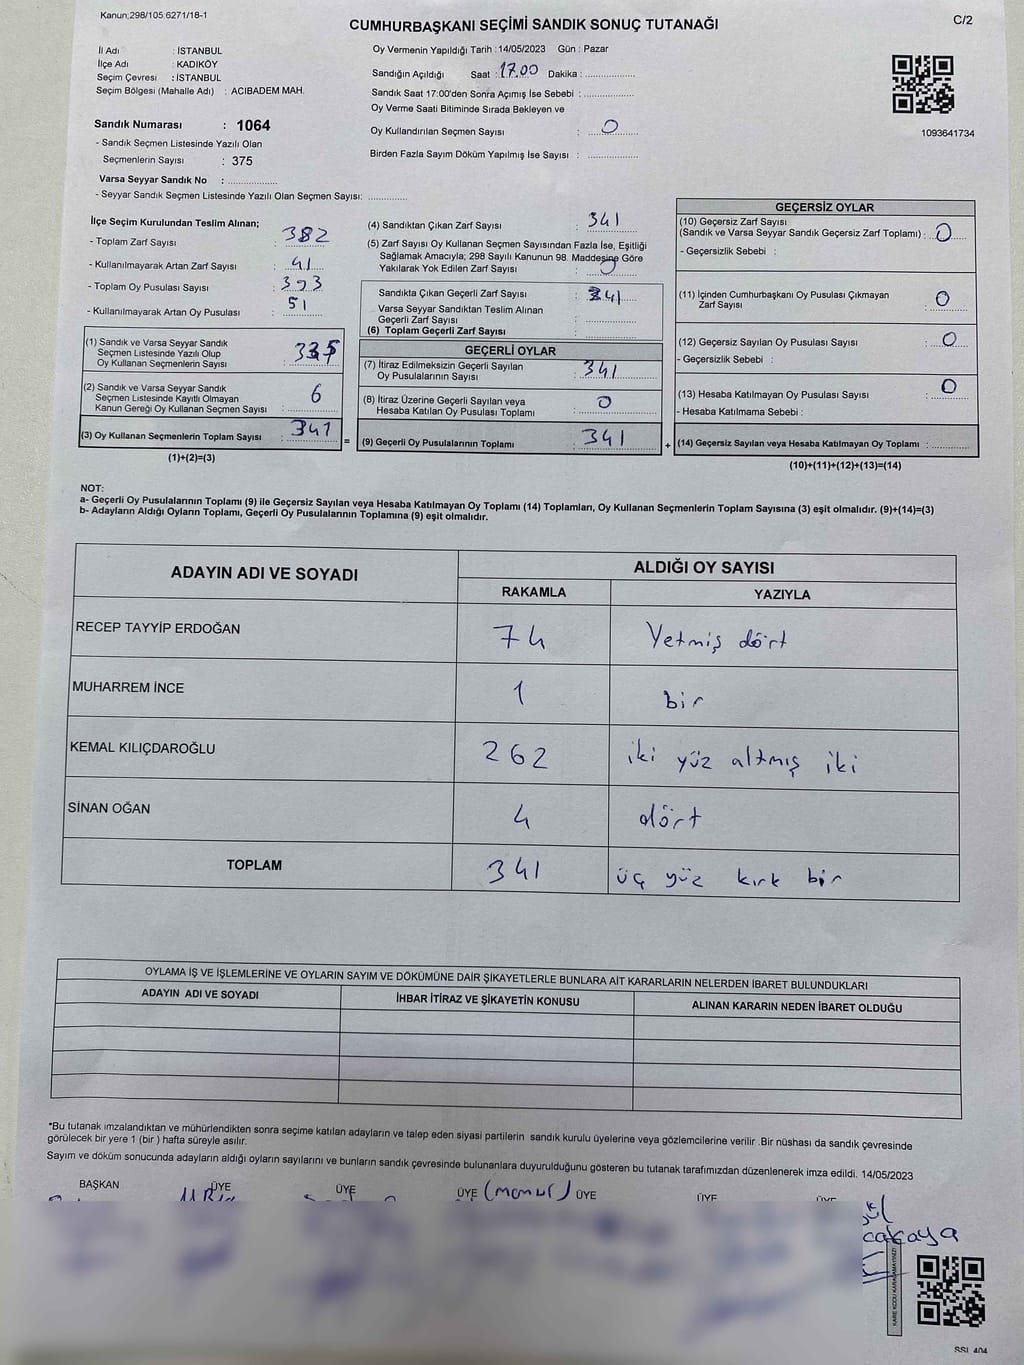 Kanun;298/105;6271/18-1
CUMHURBAŞKANI SEÇİMİ SANDIK SONUÇ TUTANAĞI
C/2
İl Adı : İSTANBUL
İlçe Adı : KADIKÖY
Seçim Çevresi : İSTANBUL
Seçim Bölgesi (Mahalle Adı) : ACIBADEM MAH.
Oy Vermenin Yapıldığı Tarih :14/05/2023 Gün : Pazar
Sandığın Açıldığı Saat :17.00 Dakika :....................
Sandık Saat 17:00'den Sonra Açımış İse Sebebi :....................
Oy Verme Saati Bitiminde Sırada Bekleyen ve
Oy Kullandırılan Seçmen Sayısı : 0
Birden Fazla Sayım Döküm Yapılmış İse Sayısı :....................
1093641734
Sandık Numarası : 1064
- Sandık Seçmen Listesinde Yazılı Olan
Seçmenlerin Sayısı : 375
Varsa Seyyar Sandık No :....................
- Seyyar Sandık Seçmen Listesinde Yazılı Olan Seçmen Sayısı:................
İlçe Seçim Kurulundan Teslim Alınan;
- Toplam Zarf Sayısı : 382
- Kullanılmayarak Artan Zarf Sayısı : 41
- Toplam Oy Pusulası Sayısı : 393
- Kullanılmayarak Artan Oy Pusulası : 51
(1) Sandık ve Varsa Seyyar Sandık
Seçmen Listesinde Yazılı Olup
Oy Kullanan Seçmenlerin Sayısı : 335
(2) Sandık ve Varsa Seyyar Sandık
Seçmen Listesinde Kayıtlı Olmayan
Kanun Gereği Oy Kullanan Seçmen Sayısı : 6
(3) Oy Kullanan Seçmenlerin Toplam Sayısı : 341 =
(1)+(2)=(3)
(4) Sandıktan Çıkan Zarf Sayısı : 341
(5) Zarf Sayısı Oy Kullanan Seçmen Sayısından Fazla İse, Eşitliği
Sağlamak Amacıyla; 298 Sayılı Kanunun 98. Maddesine Göre
Yakılarak Yok Edilen Zarf Sayısı : 0
Sandıkta Çıkan Geçerli Zarf Sayısı : 341
Varsa Seyyar Sandıktan Teslim Alınan
Geçerli Zarf Sayısı :....................
(6) Toplam Geçerli Zarf Sayısı :....................
GEÇERLİ OYLAR
(7) İtiraz Edilmeksizin Geçerli Sayılan
Oy Pusulalarının Sayısı : 341
(8) İtiraz Üzerine Geçerli Sayılan veya
Hesaba Katılan Oy Pusulası Toplamı : 0
(9) Geçerli Oy Pusulalarının Toplamı : 341 +
GEÇERSİZ OYLAR
(10) Geçersiz Zarf Sayısı
(Sandık ve Varsa Seyyar Sandık Geçersiz Zarf Toplamı) : 0
- Geçersizlik Sebebi :
(11) İçinden Cumhurbaşkanı Oy Pusulası Çıkmayan
Zarf Sayısı : 0
(12) Geçersiz Sayılan Oy Pusulası Sayısı : 0
- Geçersizlik Sebebi :
(13) Hesaba Katılmayan Oy Pusulası Sayısı : 0
- Hesaba Katılmama Sebebi :
(14) Geçersiz Sayılan veya Hesaba Katılmayan Oy Toplamı :..............
(10)+(11)+(12)+(13)=(14)
NOT:
a- Geçerli Oy Pusulalarının Toplamı (9) ile Geçersiz Sayılan veya Hesaba Katılmayan Oy Toplamı (14) Toplamları, Oy Kullanan Seçmenlerin Toplam Sayısına (3) eşit olmalıdır. (9)+(14)=(3)
b- Adayların Aldığı Oyların Toplamı, Geçerli Oy Pusulalarının Toplamına (9) eşit olmalıdır.
ADAYIN ADI VE SOYADI ALDIĞI OY SAYISI
RAKAMLA YAZIYLA
RECEP TAYYİP ERDOĞAN 74 Yetmiş dört
MUHARREM İNCE 1 bir
KEMAL KILIÇDAROĞLU 262 iki yüz altmış iki
SİNAN OĞAN 4 dört
TOPLAM 341 üç yüz kırk bir
OYLAMA İŞ VE İŞLEMLERİNE VE OYLARIN SAYIM VE DÖKÜMÜNE DAİR ŞİKAYETLERLE BUNLARA AİT KARARLARIN NELERDEN İBARET BULUNDUKLARI
ADAYIN ADI VE SOYADI İHBAR İTİRAZ VE ŞİKAYETİN KONUSU ALINAN KARARIN NEDEN İBARET OLDUĞU
*Bu tutanak imzalandıktan ve mühürlendikten sonra seçime katılan adayların ve talep eden siyasi partilerin sandık kurulu üyelerine veya gözlemcilerine verilir .Bir nüshası da sandık çevresinde
görülecek bir yere 1 (bir ) hafta süreyle asılır.
Sayım ve döküm sonucunda adayların aldığı oyların sayılarını ve bunların sandık çevresinde bulunanlara duyurulduğunu gösteren bu tutanak tarafımızdan düzenlenerek imza edildi. 14/05/2023
BAŞKAN ÜYE ÜYE ÜYE (memur) ÜYE ÜYE ÜYE
SSI_404